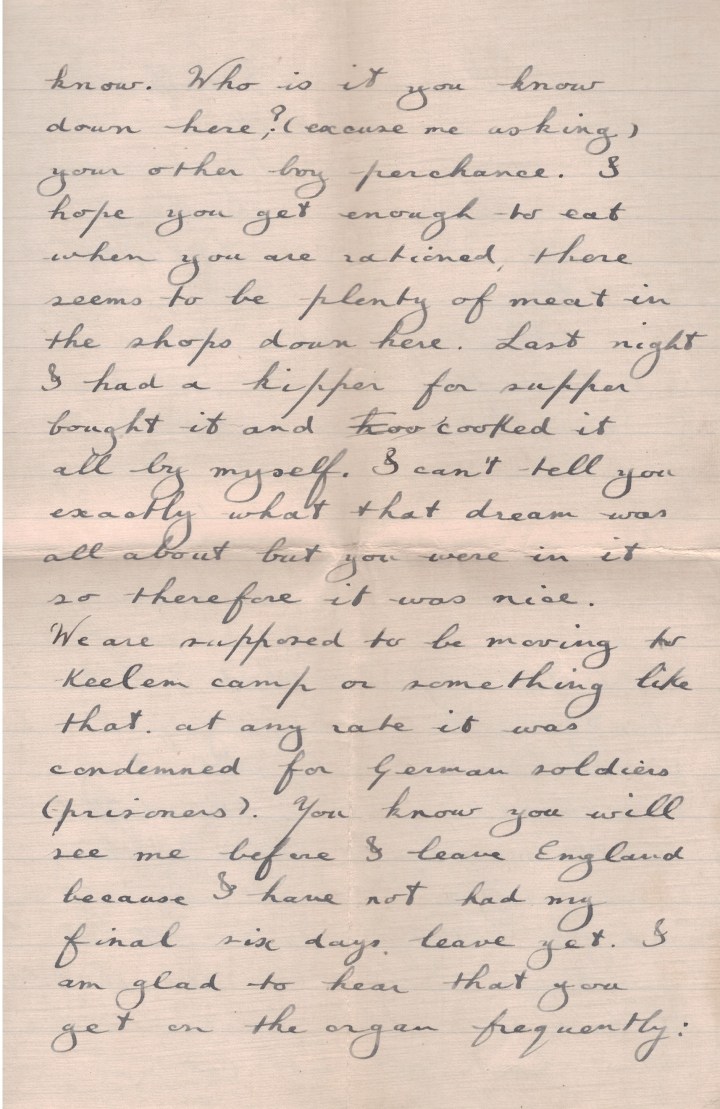 know. Who is it you know
down here,? (excuse me asking)
your other boy perchance. I
hope you get enough to eat
when you are rationed, there
seems to be plenty of meat in
the shops down here. Last night
I had a kipper for supper
bought it and coo cooked it
all by myself. I can't tell you
exactly what that dream was
all about but you were in it
so therefore it was nice.
We are supposed to be moving to
Keelem camp or something like
that. at any rate it was
condemned for German soldiers
(prisoners). You know you will
see me before I leave England
because I have not had my
final six days, leave yet. I
am glad to hear that you
get on the organ frequently: